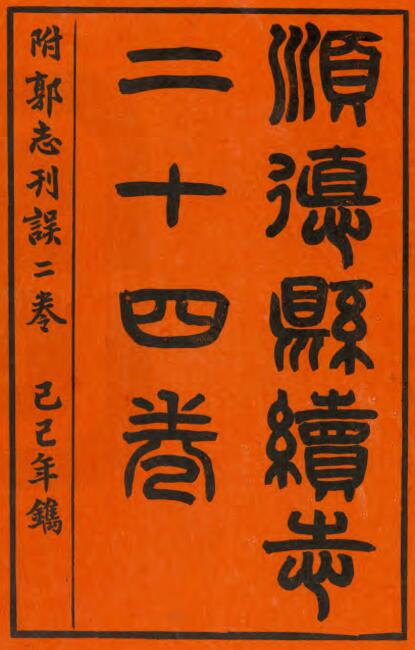 順德縣續志
二十四卷
附郭志刊誤二卷 己巳年鐫